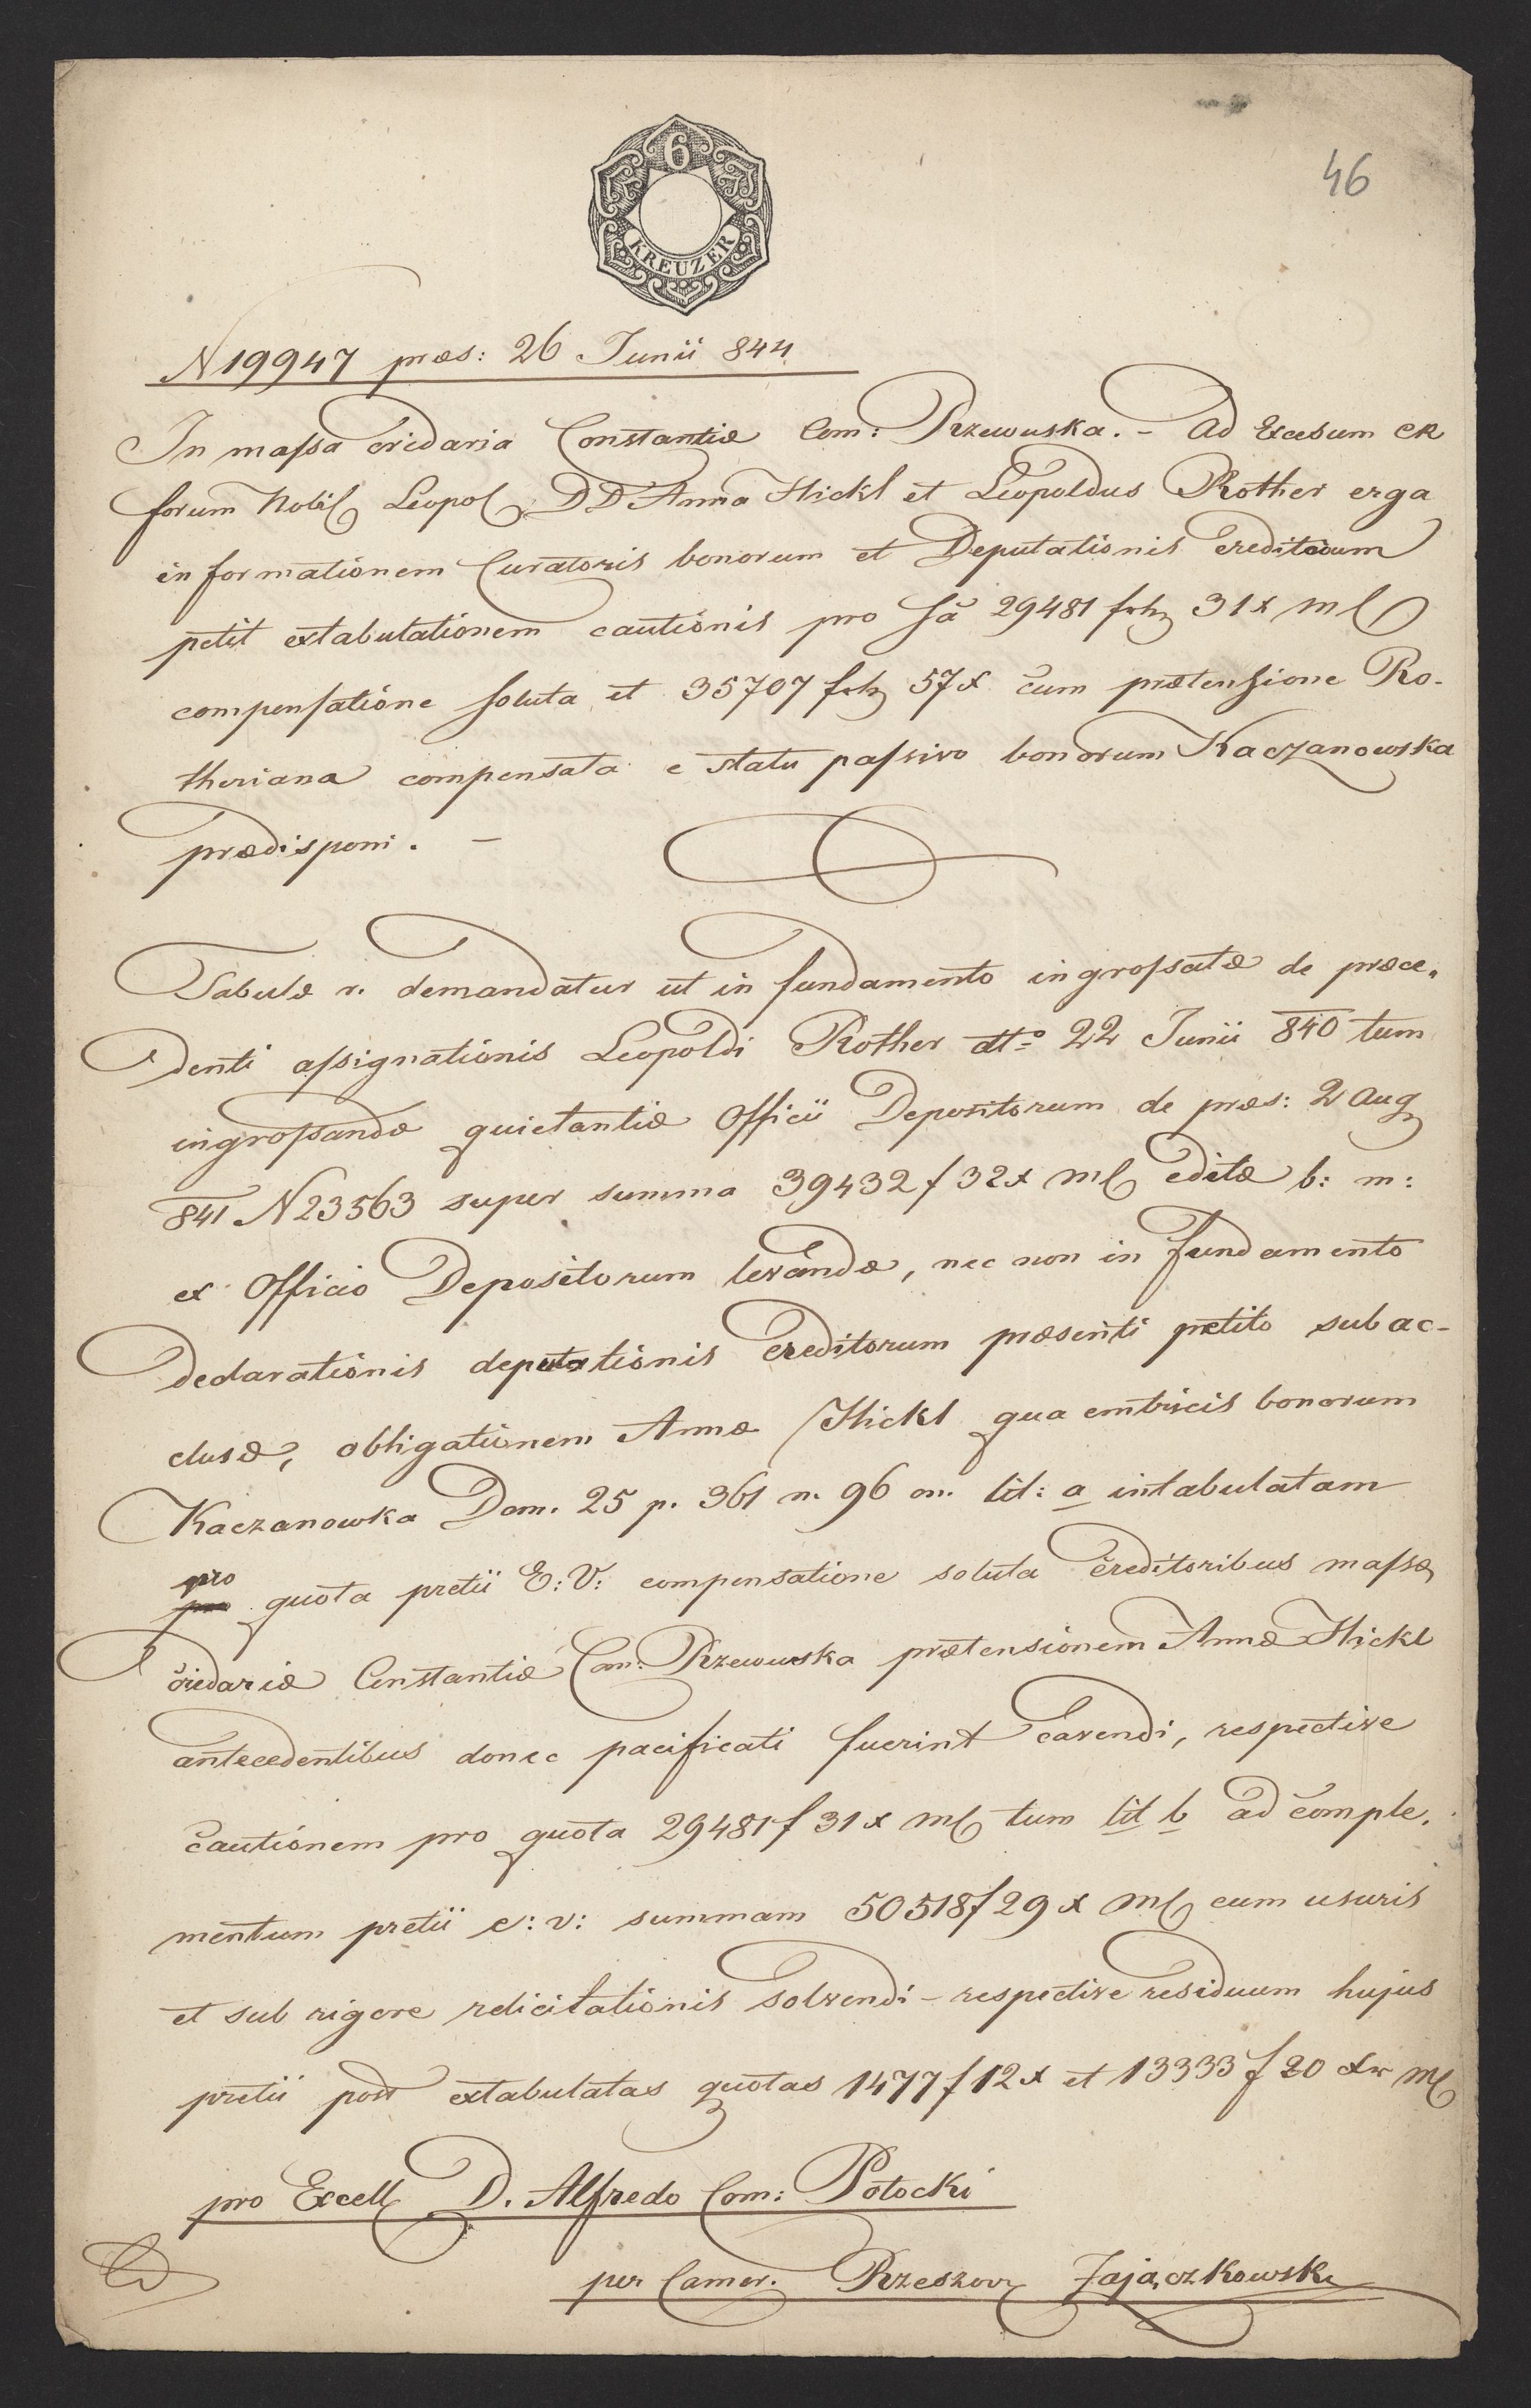 6
KREUZER
46
N 19947 præs: 26 Junii 844
In massa cridaria Constantiæ Com: Rzewuska. – Ad Excesum CR
forum Nobil Leopol DD Anna Hickl et Leopoldus Rother erga
informationem Curatoris bonorum et Deputationis Creditorum
petit extabulationem cautionis pro sã 29481 frh 31 x M
compensatione soluta et 35707 frh 57 x cum prætensione Ro-
theriana compensata e statu passivo bonorum Kaczanowska
prædisponi. –
Tabulæ r. demandatur ut in fundamento ingrossatæ de præce-
denti assignationis Leopoldi Rother dtto 22 Junii 840 tum
ingrossandæ quietantiæ Officii Depositorum de præs: 2 Aug
841 N 23563 super summa 39432 f 32 x M editæ b: m:
ex Officio Depositorum levandæ, nec non in fundamento
Declarationis deputationis Creditorum præsenti petito sub ac-
clusæ, obligationem Annæ Hickl qua emtricis bonorum
Kaczanowka Dom. 25 p. 361 n. 96 on. lit: a intabulatam
pro
pro quota pretii E: V: compensatione soluta Creditoribus massæ
cridariæ Constantiæ Com: Rzewuska prætensionem Annæ Hickl
antecedentibus donec pacificati fuerint cavendi, respective
cautionem pro quota 29481 f 31 x M tum lit b ad comple-
mentum pretii e: v: summam 50518 f 29 x M cum usuris
et sub rigore relicitationis solvendi – respective residuum hujus
pretii post extabulatas quotas 1477 f 12 x et 13333 f 20 xr M
pro Excell D. Alfredo Com: Potocki
per Camer. Rzeszov Zajączkowski